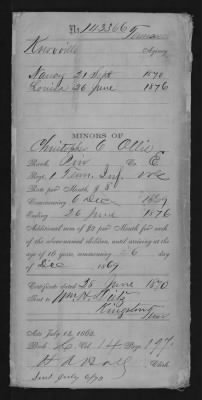 No. 143366 Tenn
Knoxville Agency
Nancy 21 Sept 1870
Louisa 26 June 1876
MINORS OF
Christopher C Ollis
Rank, Priv Co. E
Regt. 1 Tenn. Inf. Vols
Rate per Month, $8
Commencing 6 Dec 1869
Ending 26 June 1876
Additional sum of $2 per Month for each
of the abovenamed children, until arriving at the
age of 16 years, commencing 6 day
of Dec 1869
Certificate dated 25 June 1870
Sent to Wm. H.
Kingston
Tenn
Act July 14, 1862.
Book Vol. 14 Page 197.
Clerk
Sent July 6/70